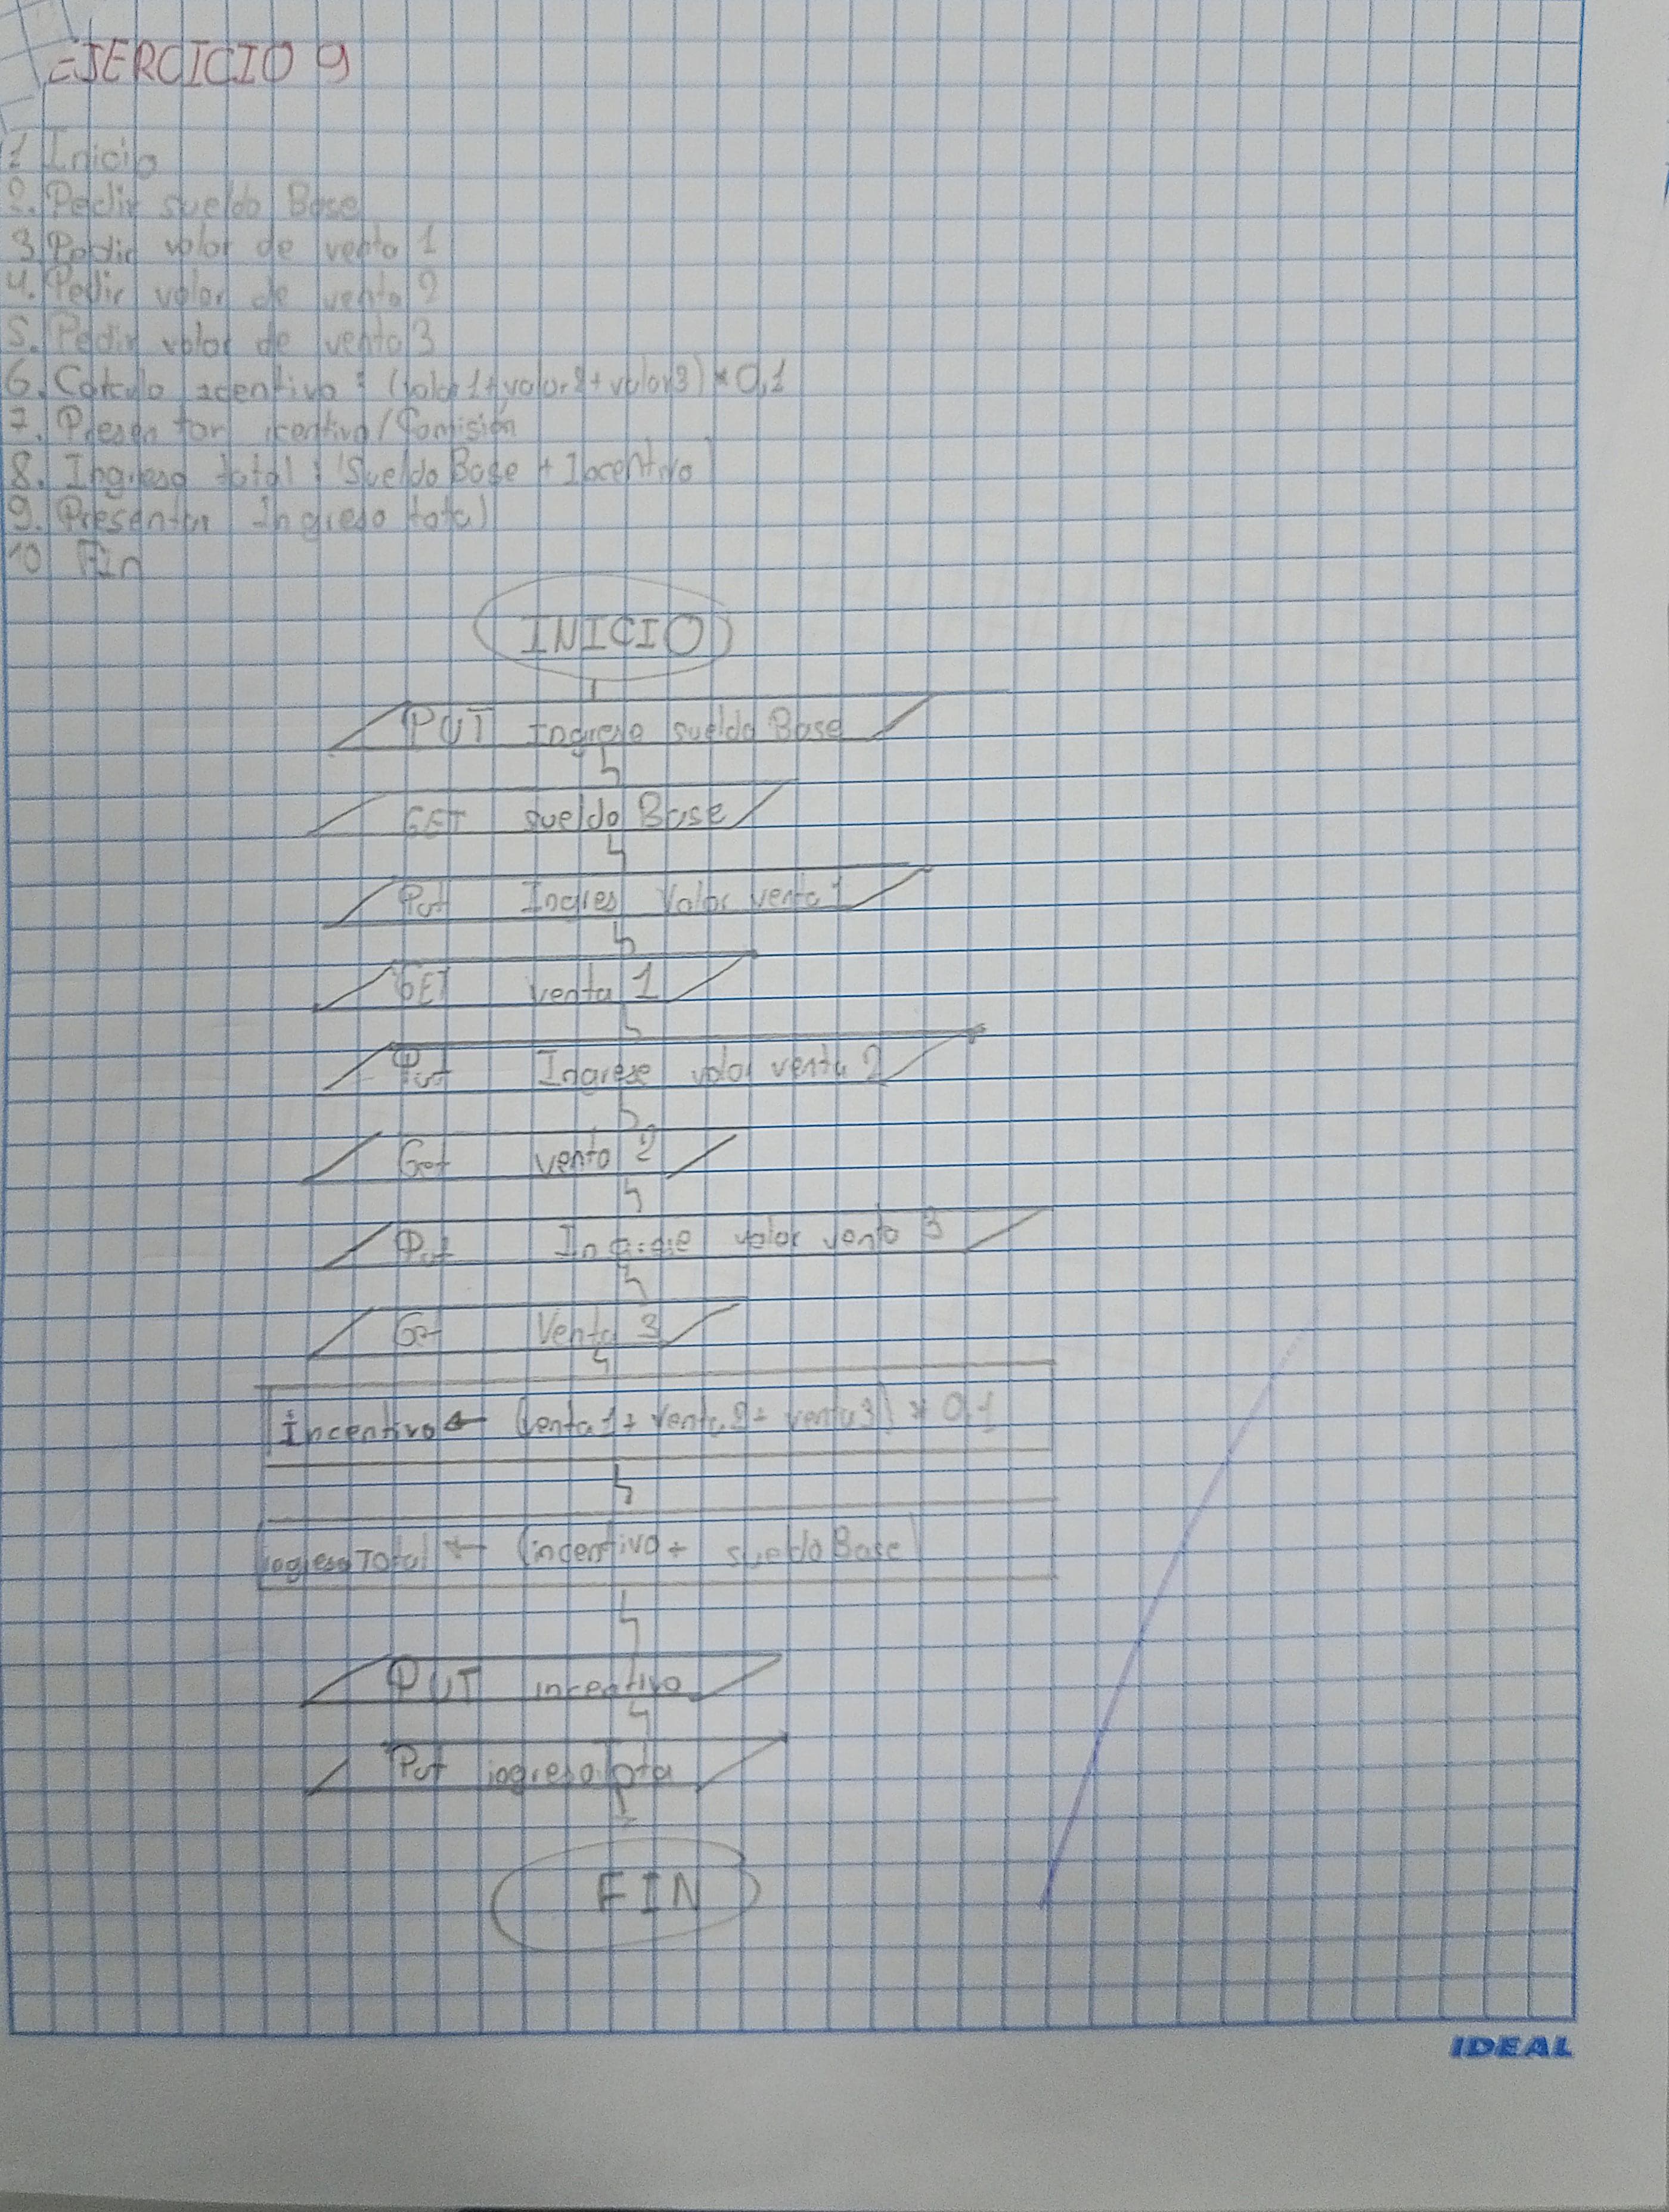 EJERCICIO 9
1 Inicio
2. Pedir sueldo Base
3 Pedir valor de venta 1
4. Pedir valor de venta 2
5. Pedir valor de venta 3
6. Calculo icentivo : (valor1+valor2+valor3) * 0,1
7. Presentar icentivo/Comisión
8. Ingreso total : Sueldo Base + Incentivo
9. Presentar Ingreso total
10 Fin
INICIO
PUT Ingrese sueldo Base
GET sueldo Base
Put Ingres Valor venta 1
GET venta 1
Put Ingrese valor venta 2
Get venta 2
Put Ingrese valor venta 3
Get Venta 3
Incentivo ← (venta1+ Venta2+ venta3) * 0,1
ingresoTotal ← (incentivo + sueldoBase)
PUT incentivo
Put ingreso
FIN
IDEAL